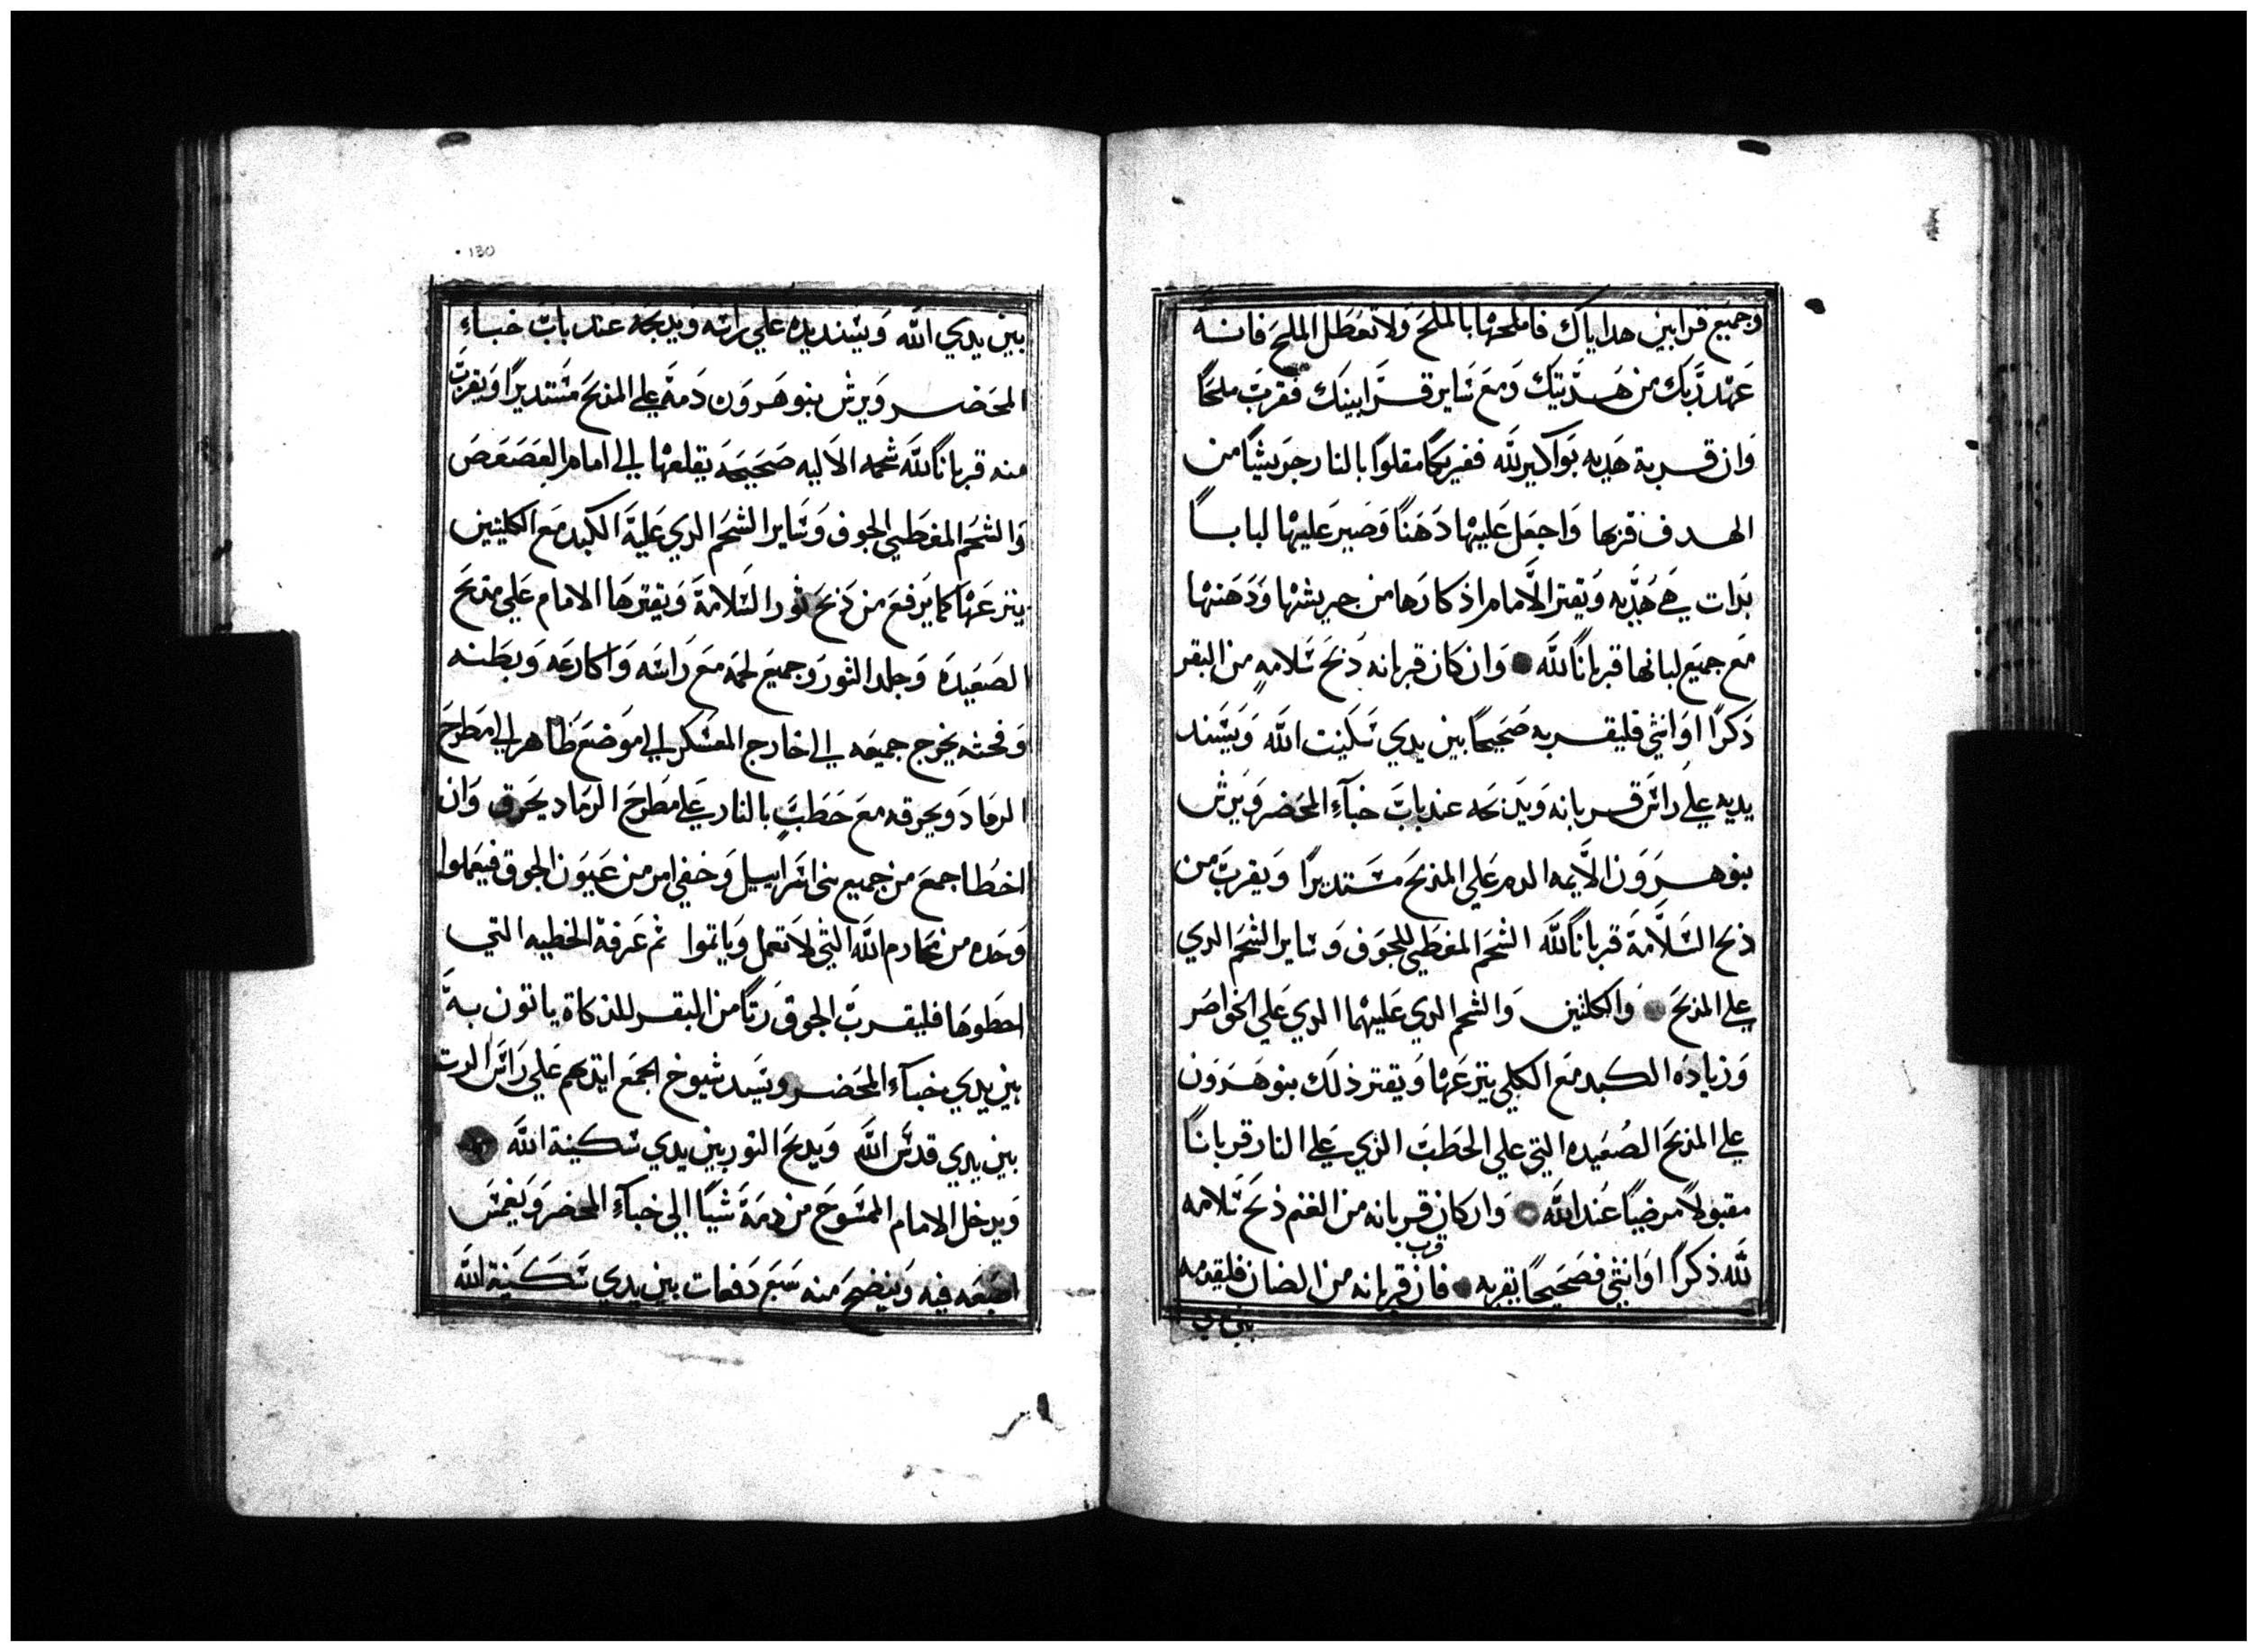 وجميع قرابين هداياك فاملحها بالملح ولا تعطل الملح فانه
عهد ربك من هديتك ومع ساير قرابينك فقرب ملحًا
وان قربة هديه بواكير لله ففريكًا مقلوًا بالنار جريشًا من
الهدف قربها واجعل عليها دهنًا وصير عليها لبابا
بدات هي هديه ويقتر الامام اذكارها من جريشها ودهنها
مع جميع لبانها قربانًا لله وان كان قربانه ذبح سلامه من البقر
دكرًا او انثي فليقربه صحيحًا بين يدي سكينت الله ويسند
يديه علي راس قربانه ويدبحه عند باب خبآء المحضر ويرش
بنو هرون الايمه الدم علي المذبح مستديرًا ويقرب من
ذبح السلامة قربانًا لله الشحم المغطي للجوف وساير الشحم الدي
علي المذبح والكلتين والشحم الدي عليهما الدي علي الخواصر
وزياده الكبد مع الكلي ينزعها ويقتر ذلك بنو هرون
علي المذبح الصعيده التي علي الحطب الذي علي النار قربانًا
مقبولًا مرضيًا عند الله وان كان قربانه من الغنم ذبح سلامه
لله ذكرًا او انثي فصحيحًا يقربه فان قرب قربانه من الضان فليقدمه
بين يدي
130
بين يدي الله ويسند يده علي راسه ويدبحه عند باب خباء
المحضر ويرش بنو هرون دمه علي المذبح مستديرًا ويقرب
منه قربانًا لله شحمه الاليه صحيحه يقلعها الي امام العصعص
والشحم المغطي الجوف وساير الشحم الدي عليه الكبد مع الكليتين
ينزعها كما يرفع من ذبح ثور السلامة ويقترها الامام علي مذبح
الصعيده وجلد الثور وجميع لحمه مع راسه واكارعه وبطنه
وفحثه يخرج جميعه الي خارج المعسكر الي موضع طاهر الي مطرح
الرماد ويحرقه مع حطب بالنار علي مطرح الرماد يحرق وان
اخطا جمع من جميع بني اسراييل وخفي امر من عيون الجوق فيعملوا
وحده من محارم الله التي لا تعمل وياتموا ثم عرفة الخطيه التي
اخطوها فليقرب الجوق رتًا من البقر للذكاة ياتون به
بين يدي خبآء المحضر ويسند شيوخ الجمع ايديهم علي راس الرت
بين يدي قدس الله ويدبح الثور بين يدي سكينة الله
ويدخل الامام الممسوح من دمه شيًا الي خبآء المحضر ويغمس
اصبعه فيه وينضح منه سبع دفعات بين يدي سكينة الله